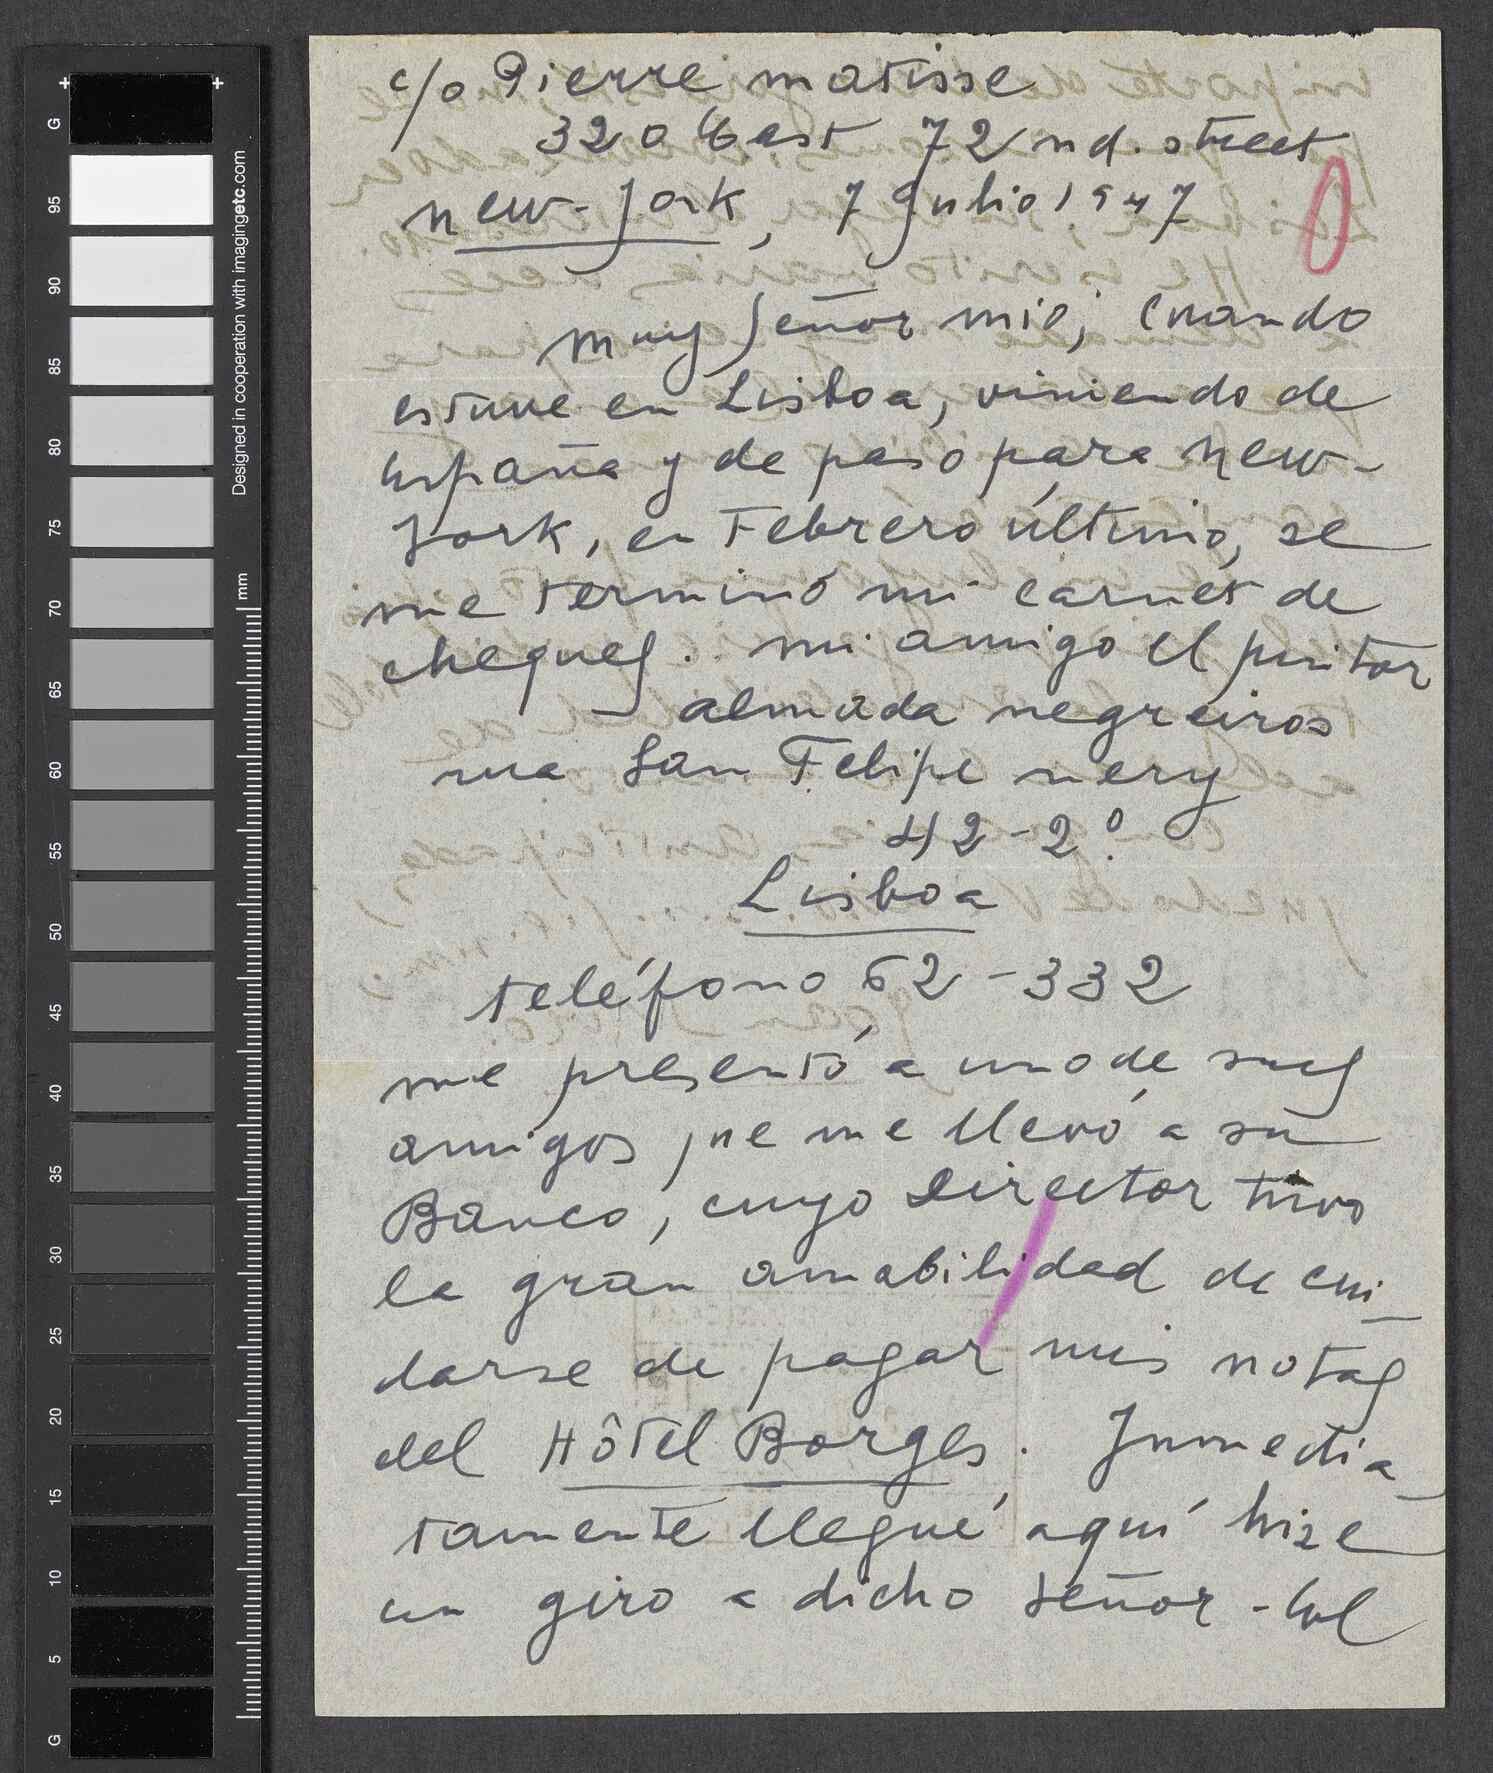 c/o Pierre matisse
320 East 72 nd. street
new-york, 7 Julio 1947
muy Señor mio; Cuando
estuve en Lisboa, viniendo de
España y de paso para new-
york, en Febrero último, se
me terminó mi carnet de
cheques. mi amigo el pintor
almada negreiros
rua San Felipe nery
42-2º
Lisboa
teléfono 62-332
me presentó a uno de sus
amigos, que me llevó a su
Banco, cuyo Director tuvo
la gran amabilidad de cui-
darse de pagar mis notas
del Hôtel Borges. Inmedia-
tamente llegué aquí hize
un giro a dicho señor -
Designed in cooperation with imagingetc.com
mm
G
95
90
85
80
75
70
65
60
55
50
45
40
35
30
25
20
15
10
5
G